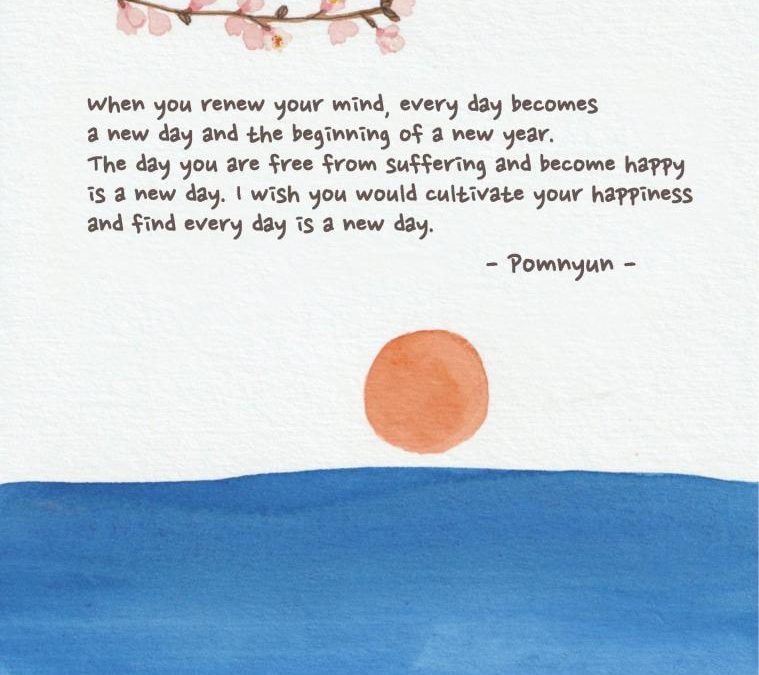 When you renew your mind, every day becomes
a new day and the beginning of a new year.
The day you are free from suffering and become happy
is a new day. I wish you would cultivate your happiness
and find every day is a new day.
- Pomnyun -